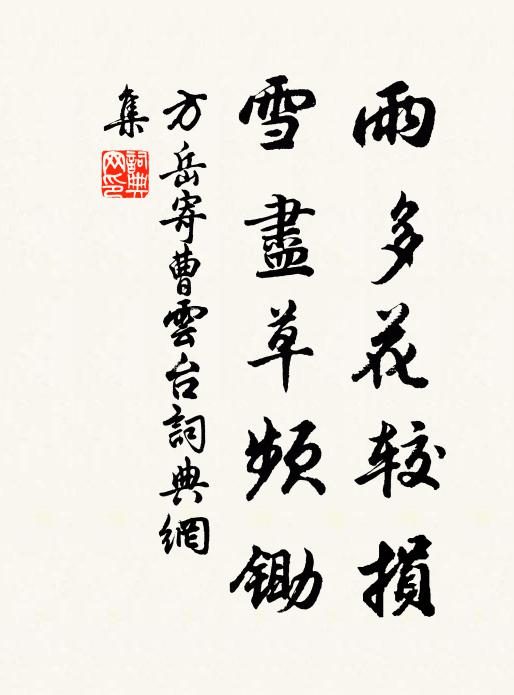 雨多花較損
雪盡草頻鋤
方岳寄曹雲台詞典網
集
詞典網印